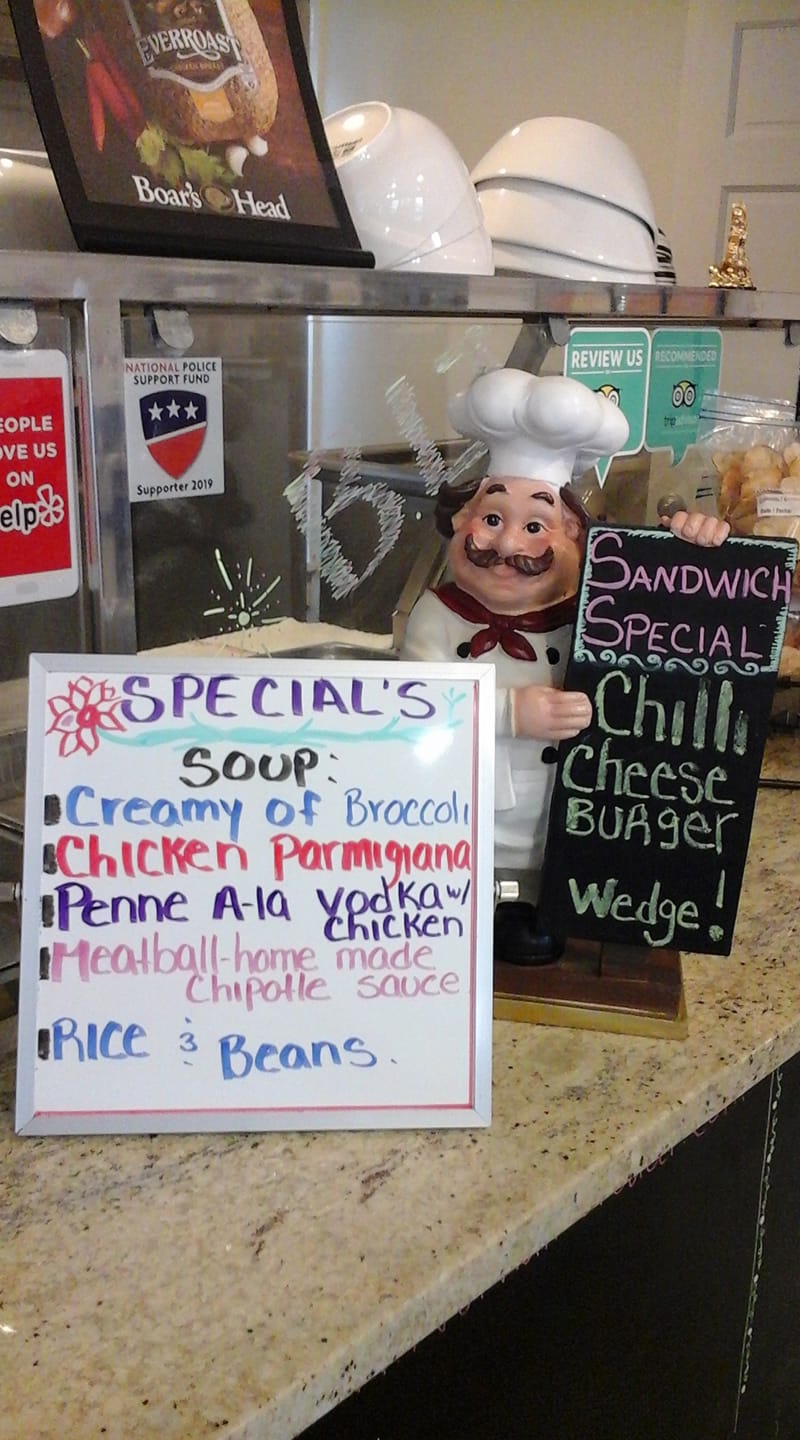 EVERROAST
Boar's Head
EOPLE
OVE US
ON
elp
NATIONAL POLICE
SUPPORT FUND
Supporter 2019
REVIEW US
RECOMMENDED
SPECIAL'S
SOUP:
Creamy of Broccoli
Chicken Parmigiana
Penne A-la Vodka w/
Chicken
Meatball-home made
Chipotle sauce
RICE & Beans.
SANDWICH
SPECIAL
Chilli
Cheese
BURger
Wedge!